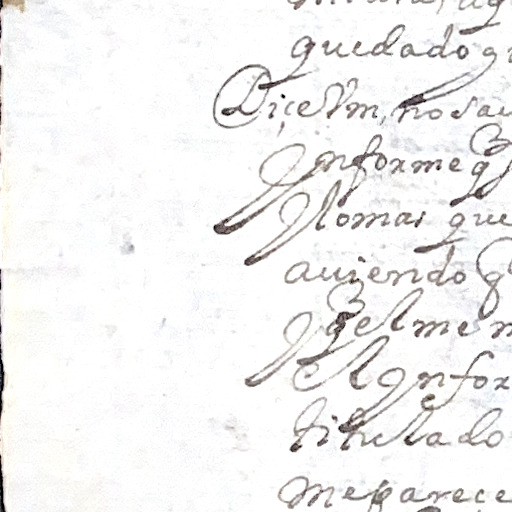 quedado
Diçe Vm, no sau
Ynforme q
Y lo mas que
auiendo q
Y q el me
el Ynfor
titulado
me parece